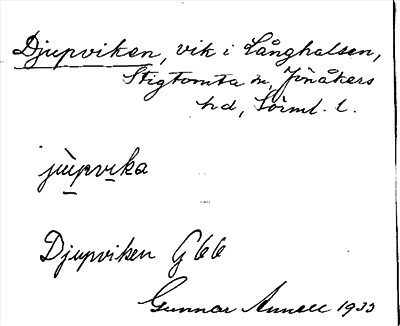 Djupviken, vik i Långhalsen,
Stigtomta sn, Jönåkers
hd, Sörml. l.
jùpvika
Djupviken G 66
Gunnar Annell 1933